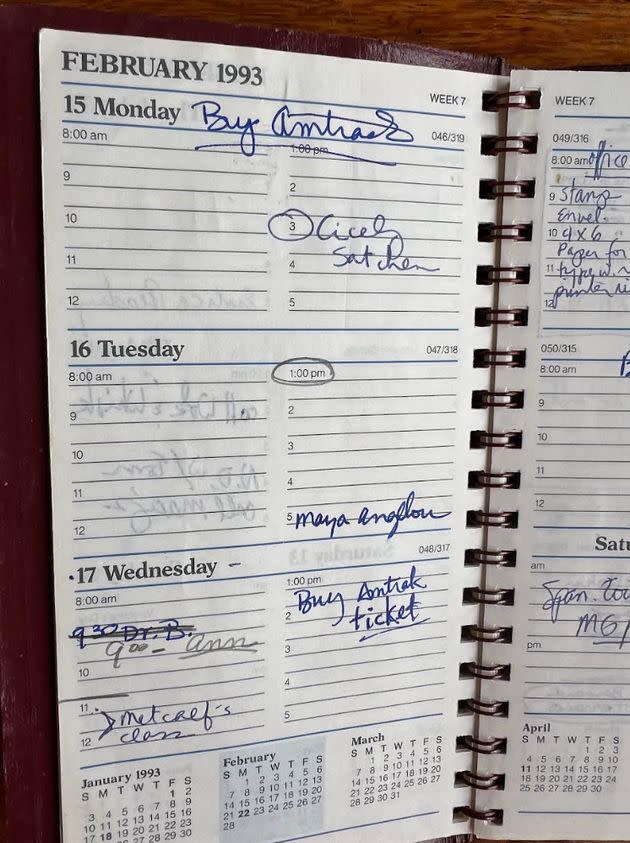 FEBRUARY 1993
WEEK 7
15 Monday
Buy Amtrack
046/319
8:00 am
1:00 pm
9
2
10
3 Cicely
Satchen
11
4
12
5
16 Tuesday
047/318
8:00 am
1:00 pm
9
2
10
3
11
4
12
5 maya angelou
17 Wednesday -
048/317
8:00 am
1:00 pm
Buy Amtrak
2 ticket
930 Dr. B.
900- ann
10
3
11
4
Metcalf's
12 class
5
January 1993
S M T W T F S
1 2
3 4 5 6 7 8 9
10 11 12 13 14 15 16
17 18 19 20 21 22 23
February
S M T W T F S
1 2 3 4 5 6
7 8 9 10 11 12 13
14 15 16 17 18 19 20
21 22 23 24 25 26 27
28
March
S M T W T F S
1 2 3 4 5 6
7 8 9 10 11 12 13
14 15 16 17 18 19 20
21 22 23 24 25 26 27
28 29 30 31
WEEK 7
049/316
8:00 am office
9 Stamp
Envel.
10 4x6
Paper for
11
12
050/315
8:00 am
9
10
11
12
Satu
am
pm
April
S M T W T F S
1 2 3
4 5 6 7 8 9 10
11 12 13 14 15 16 17
18 19 20 21 22 23 24
25 26 27 28 29 30